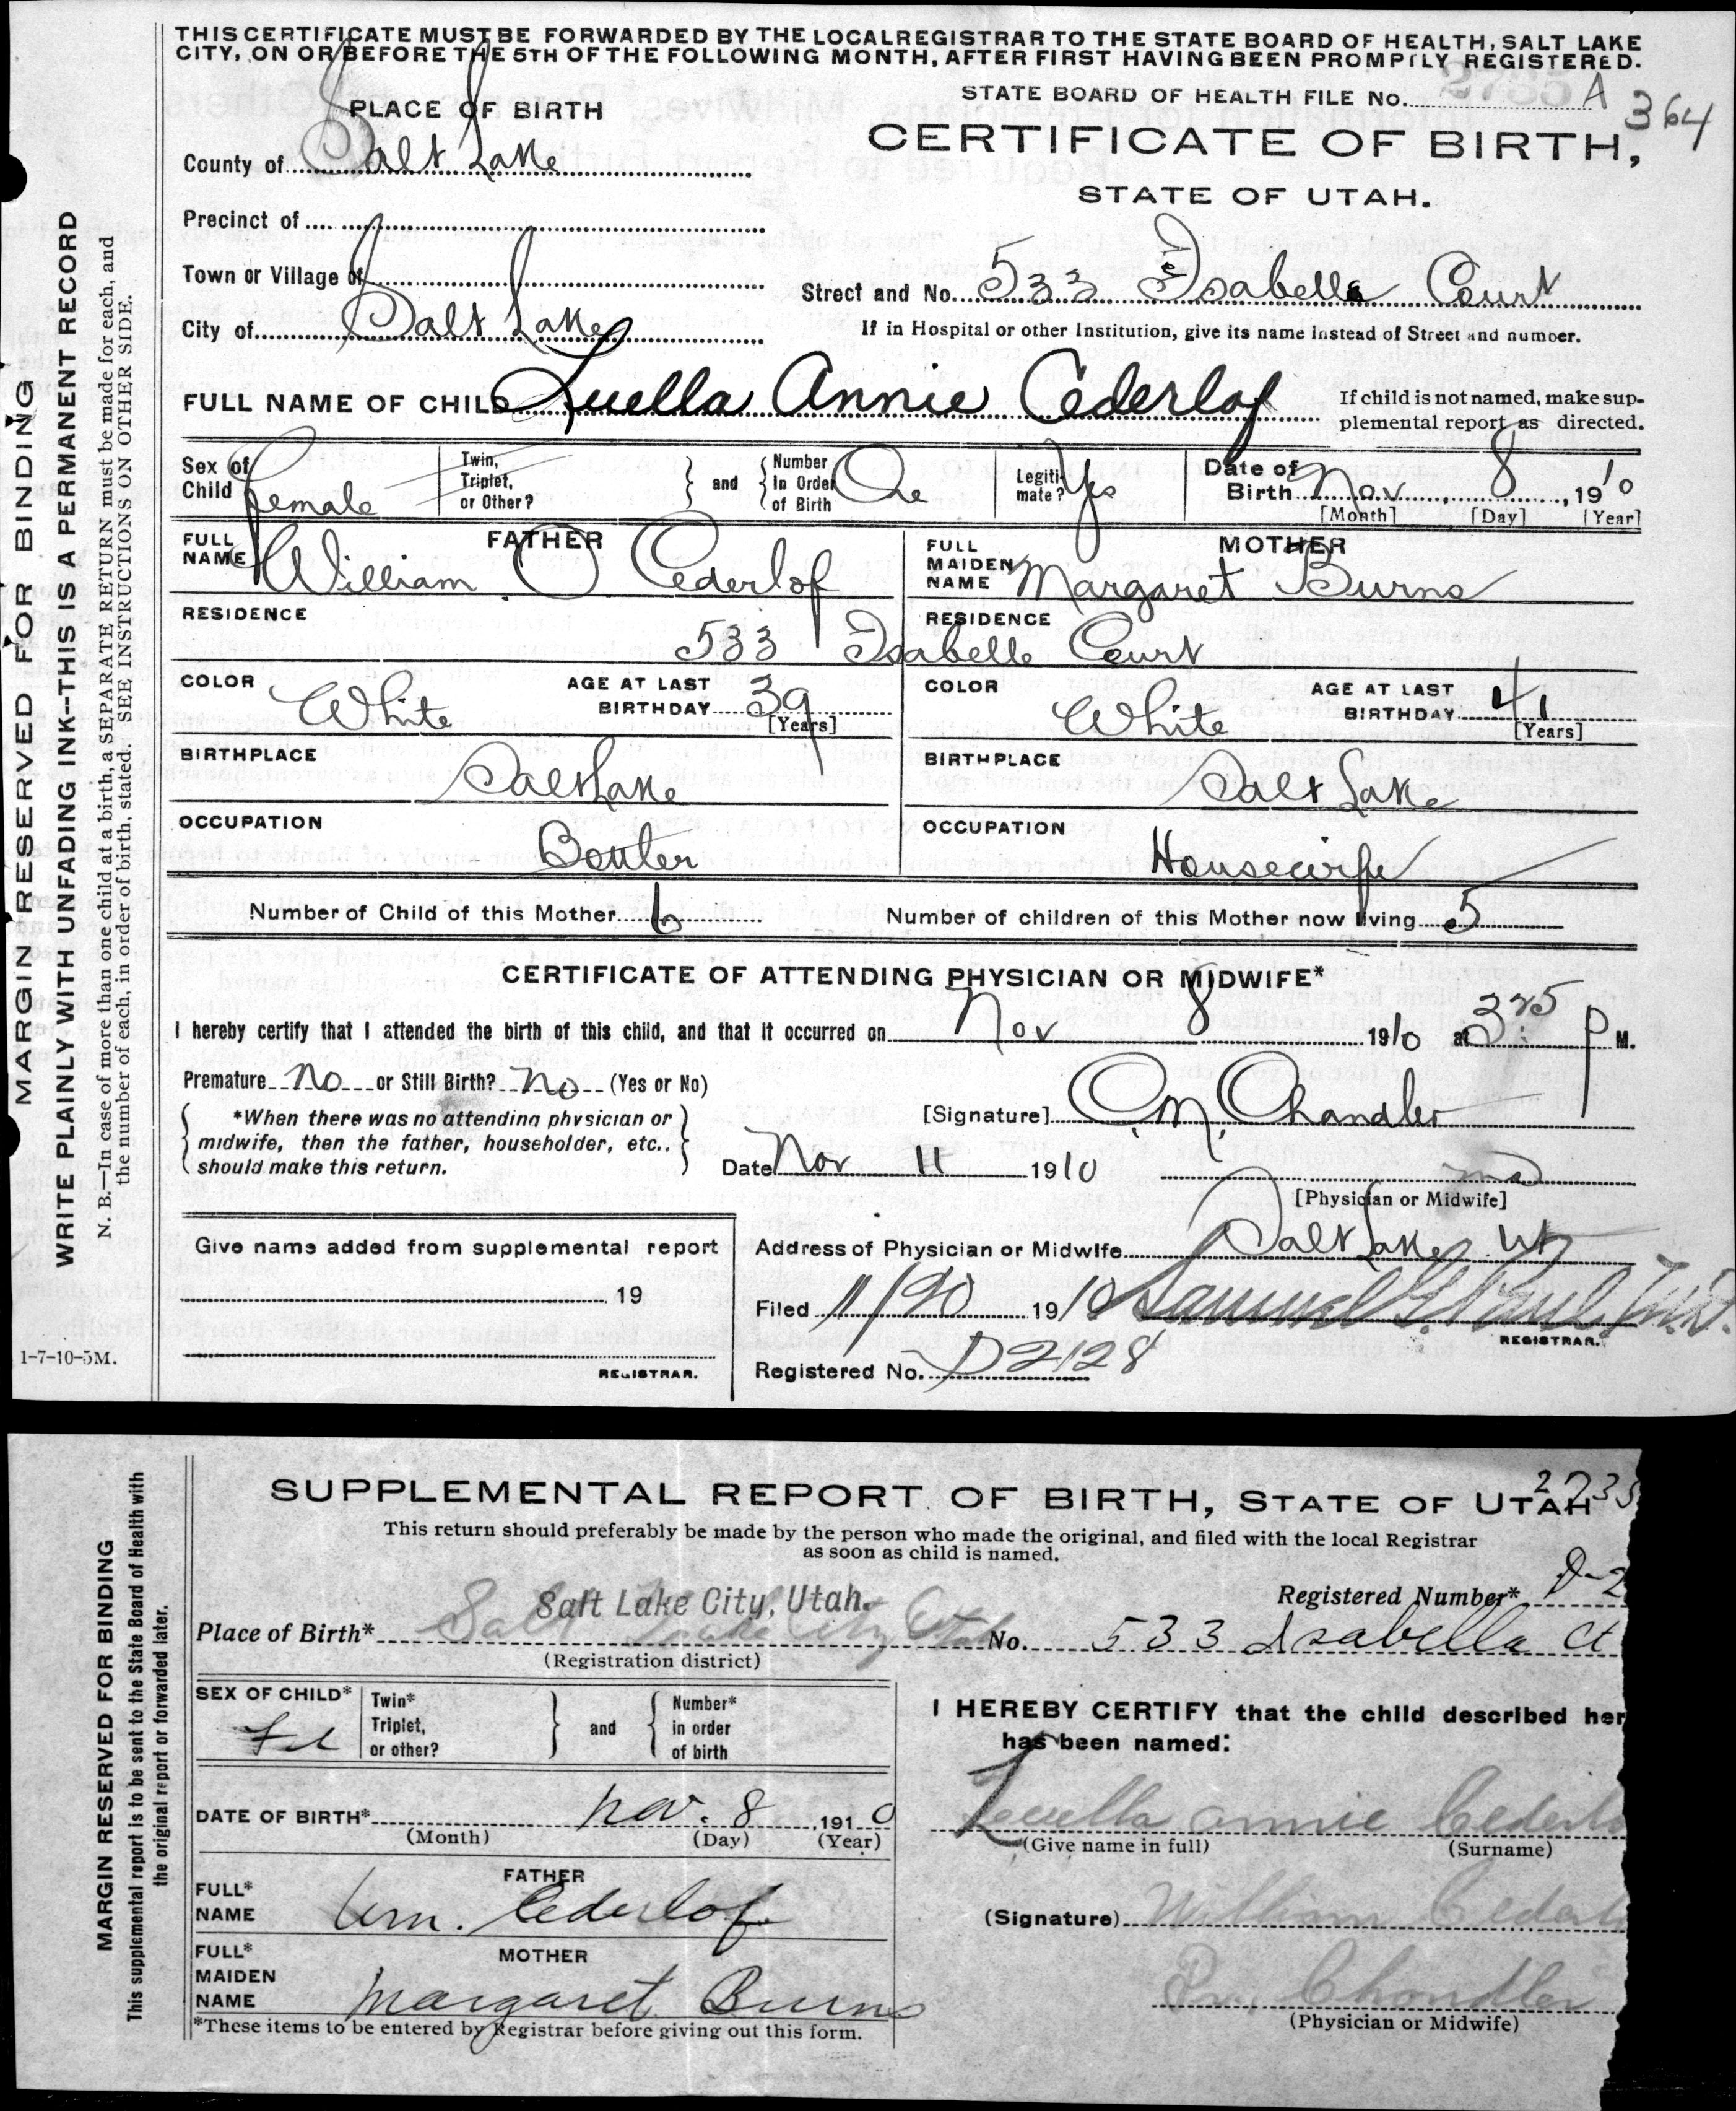 THIS CERTIFICATE MUST BE FORWARDED BY THE LOCAL REGISTRAR TO THE STATE BOARD OF HEALTH, SALT LAKE
CITY, ON OR BEFORE THE 5TH OF THE FOLLOWING MONTH, AFTER FIRST HAVING BEEN PROMPTLY REGISTERED.
STATE BOARD OF HEALTH FILE No. 2735 A 364
PLACE OF BIRTH
CERTIFICATE OF BIRTH,
STATE OF UTAH.
County of Salt Lake
Precinct of
Town or Village of
City of Salt Lake
Street and No. 533 Isabella Court
If in Hospital or other Institution, give its name instead of Street and number.
FULL NAME OF CHILD Luella Annie Cederlof
If child is not named, make sup-
plemental report as directed.
Sex of Child female
Twin, Triplet, or Other?
and
Number In Order of Birth One
Legiti-mate? Yes
Date of Birth Nov 8, 1910
[Month] [Day] [Year]
FATHER
FULL NAME William O Cederlof
MOTHER
FULL MAIDEN NAME Margaret Burns
RESIDENCE
RESIDENCE
533 Isabelle Court
COLOR White
AGE AT LAST BIRTHDAY 39 [Years]
COLOR White
AGE AT LAST BIRTHDAY 41 [Years]
BIRTHPLACE Salt Lake
BIRTHPLACE Salt Lake
OCCUPATION
OCCUPATION Housewife
Number of Child of this Mother 6
Number of children of this Mother now living 5
CERTIFICATE OF ATTENDING PHYSICIAN OR MIDWIFE*
I hereby certify that I attended the birth of this child, and that it occurred on Nov 8 1910 at 3:25 P M.
Premature No or Still Birth? No (Yes or No)
*When there was no attending physician or
midwife, then the father, householder, etc.,
should make this return.
[Signature] C. M. Chandler
Date Nov 11 1910
MD
[Physician or Midwife]
Give name added from supplemental report
19
REGISTRAR.
Address of Physician or Midwife Salt Lake Ut
Filed 11/20 1910 Samuel G. Paul, M.D.
REGISTRAR.
Registered No. D2128
MARGIN RESERVED FOR BINDING
WRITE PLAINLY WITH UNFADING INK--THIS IS A PERMANENT RECORD
N. B.—In case of more than one child at a birth, a SEPARATE RETURN must be made for each, and
the number of each, in order of birth, stated. SEE INSTRUCTIONS ON OTHER SIDE.
1-7-10-5M.
SUPPLEMENTAL REPORT OF BIRTH, STATE OF UTAH 2735
This return should preferably be made by the person who made the original, and filed with the local Registrar
as soon as child is named.
Registered Number* D-2
Salt Lake City, Utah.
Place of Birth* Salt Lake City Utah No. 533 Isabella Ct
(Registration district)
SEX OF CHILD*
Twin* Triplet, or other?
and
Number* in order of birth
I HEREBY CERTIFY that the child described her
has been named:
DATE OF BIRTH* Nov. 8, 1910
(Month) (Day) (Year)
Luella Annie Cederlo
(Give name in full) (Surname)
FATHER
FULL* NAME Wm. Cederlof
(Signature) William Cederl
MOTHER
FULL* MAIDEN NAME Margaret Burns
Dr. Chandler
(Physician or Midwife)
*These items to be entered by Registrar before giving out this form.
MARGIN RESERVED FOR BINDING
This supplemental report is to be sent to the State Board of Health with
the original report or forwarded later.